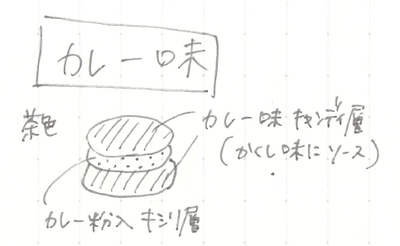 カレー味
茶色
カレー味 キャンディ層
(かくし味に ソース)
カレー粉入 キシリ層